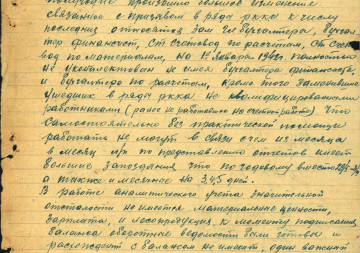 произошло большое изменение
связанное с призывом в ряды ркка к числу
последних относятся зам гл бухгалтера, бухгал-
тер финансист, ст счетовод по расчетам, ст счето
вод по материалам, на 1 января 1942г. полностью
не укомплектован не имея бухгалтера финансиста
и бухгалтера по расчетам, кроме того заменившие
ушедших в ряды ркка не квалифицированными
работниками (ранее не работавшие на счетной работе) что
самостоятельно без практической помощи
работать не могут в связи с чем из месяца
в месяц п/о по представлению отчетов имеет
большие запоздания что по годовому вместо
а также и месячные на 3,4,5 дней.
В работе аналитического учета значительной
отсталости не имеется материальные ценности,
зарплата, и лесопродукция к моменту подписания
баланса оборотные ведомости были готовы и
расхождений с балансом не имеет, один важный